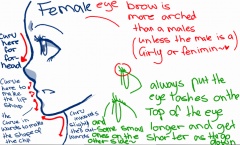 Female eye brow is
more arched
than a males
(unless the male is a
Girly or feminim~)
Curv
here
for
for-
head
Curve
here to
make
the
lift
shap
the
curve in
wards to make
the shape of
the chip
Curv
inwards
slightly
then out-
wards
and
some small
on the
other side~
always put the
eye lashes on the
Top of the eye
longer and get
shorter as they go
down